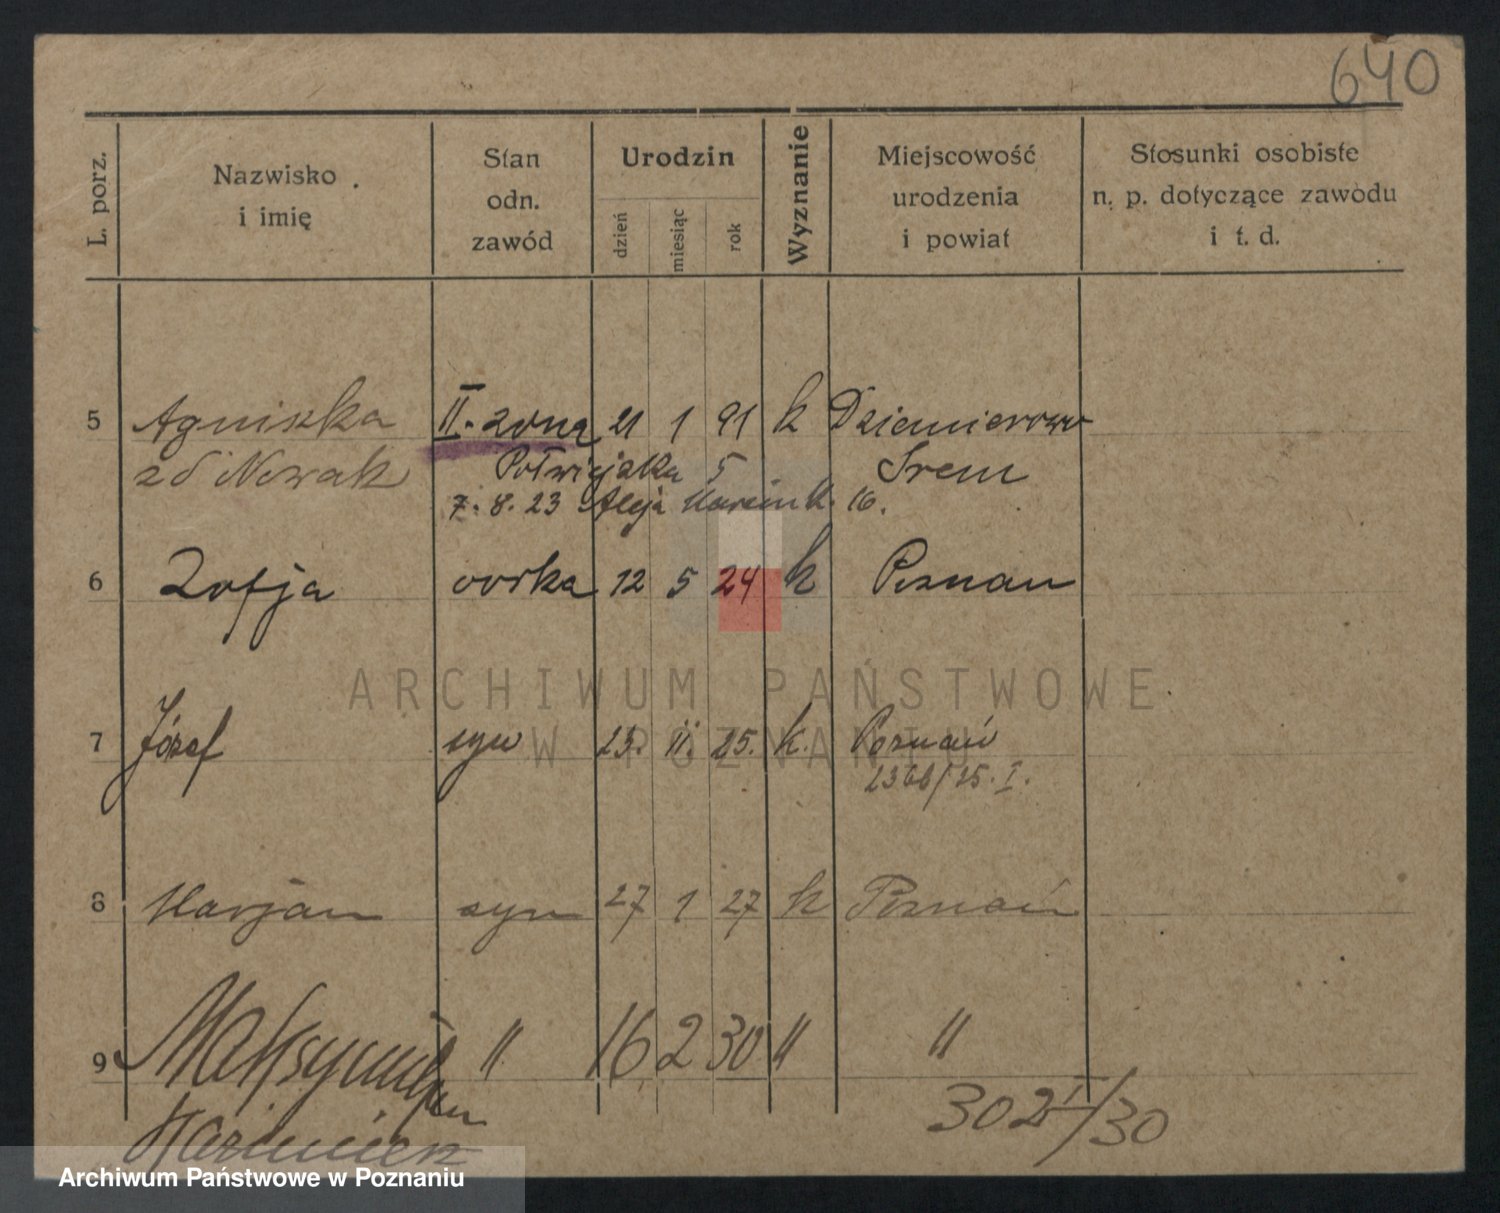 640
L. porz.
Nazwisko
i imię
Stan
odn.
zawód
Urodzin
dzień
miesiąc
rok
Wyznanie
Miejscowość
urodzenia
i powiat
Stosunki osobiste
n. p. dotyczące zawodu
i t. d.
5 Agniszka II. żona 21 1 91 k Dziemierowo
zd Nowak Półwiejska 5 Śrem
7. 8. 23 Aleja Marcink. 16.
6 Zofja córka 12 5 24 k Poznań
ARCHIWUM PAŃSTWOWE
W POZNANIU
7 Józef syn 23. II. 25. k. Poznań
2366/25. I.
8 Marjan syn 27 1 27 k Poznań
9 Maksymiljan " 16 2 30 " "
Kazimierz 302 I/30
Archiwum Państwowe w Poznaniu